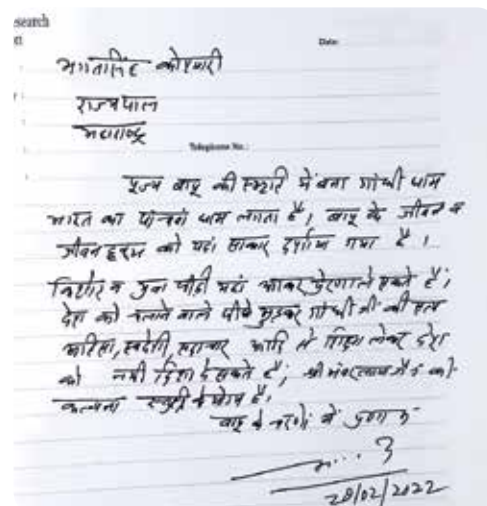 search
Date:
भगतसिंह कोश्यारी
राज्यपाल
महाराष्ट्र
Telephone No.:
पूज्य बापू की स्मृति में बना गांधी धाम
भारत का पांचवा धाम लगता है। बापू के जीवन व
जीवन दर्शन को यहां साकार दर्शाया गया है।
किशोर व युवा पीढ़ी यहां आकर प्रेरणा ले सकते हैं;
देश को चलाने वाले पीछे मुड़कर गांधी जी की सत्य
अहिंसा, स्वदेशी, सदाचार आदि से शिक्षा लेकर देश
को नयी दिशा दे सकते हैं; श्री भंवरलाल जैन की
कल्पना स्तुति के योग्य है।
बापू के चरणों में प्रणाम
28/02/2022